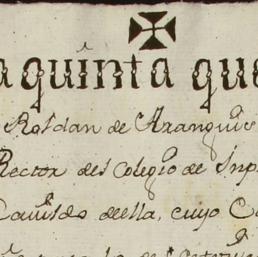 aquinta que
Roldan de Aranguis
Rector del Colegio de Ynp
Cavildo della, cuyo C